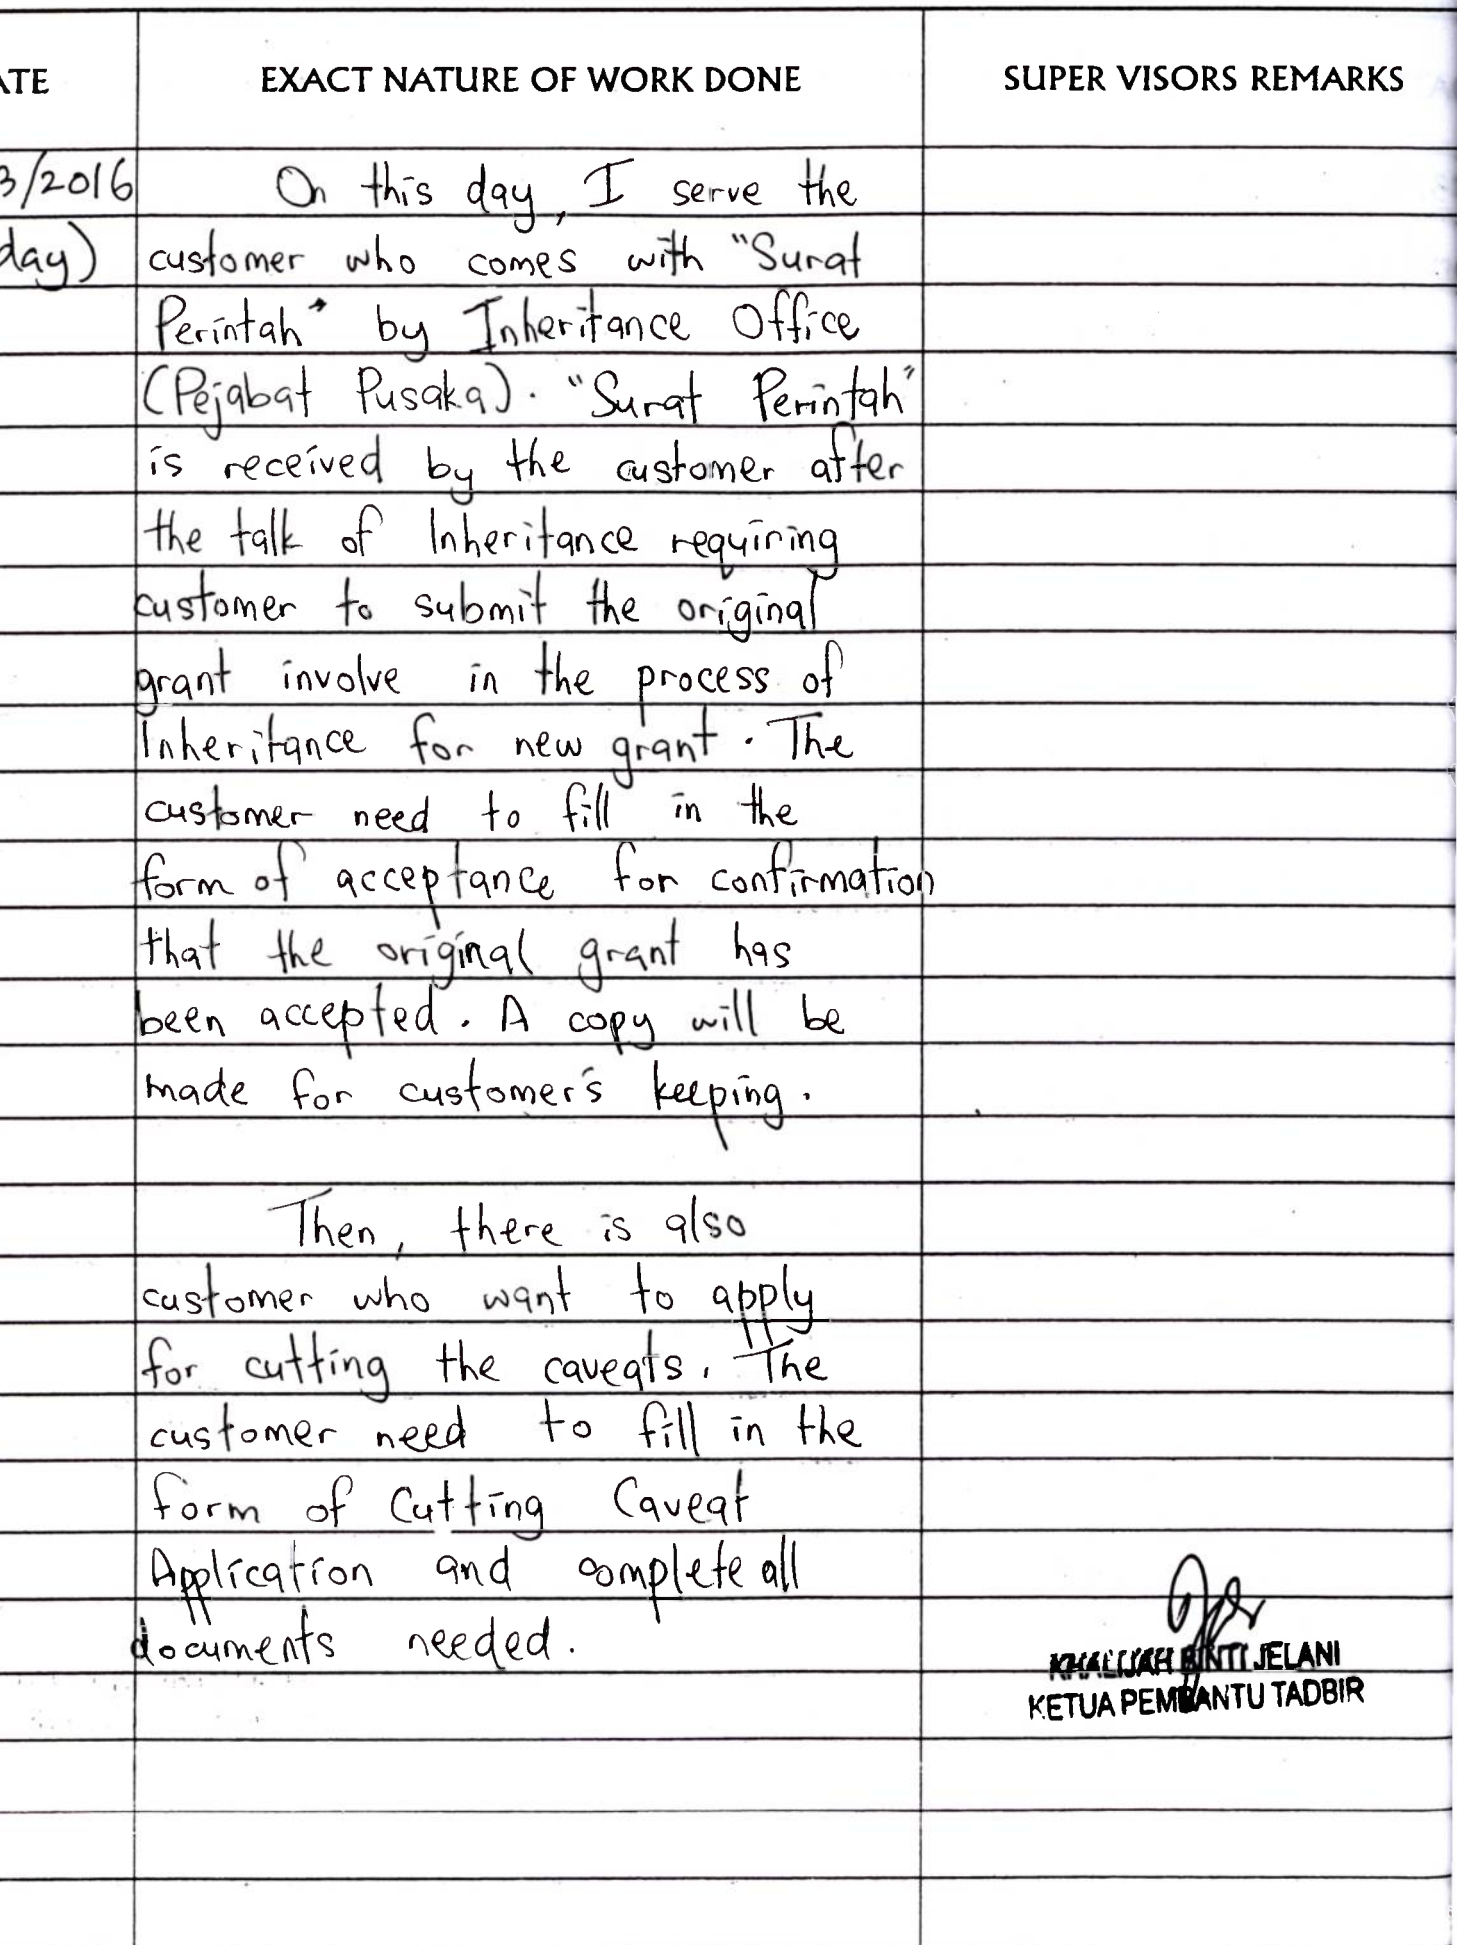 ATE EXACT NATURE OF WORK DONE SUPER VISORS REMARKS
3/2016 On this day, I serve the
day) customer who comes with "Surat
Perintah" by Inheritance Office
(Pejabat Pusaka). "Surat Perintah"
is received by the customer after
the talk of Inheritance requiring
customer to submit the original
grant involve in the process of
Inheritance for new grant. The
customer need to fill in the
form of acceptance for confirmation
that the original grant has
been accepted. A copy will be
made for customer's keeping.
Then, there is also
customer who want to apply
for cutting the caveats. The
customer need to fill in the
form of Cutting Caveat
Application and complete all
documents needed.
KHALIJAH BINTI JELANI
KETUA PEMBANTU TADBIR